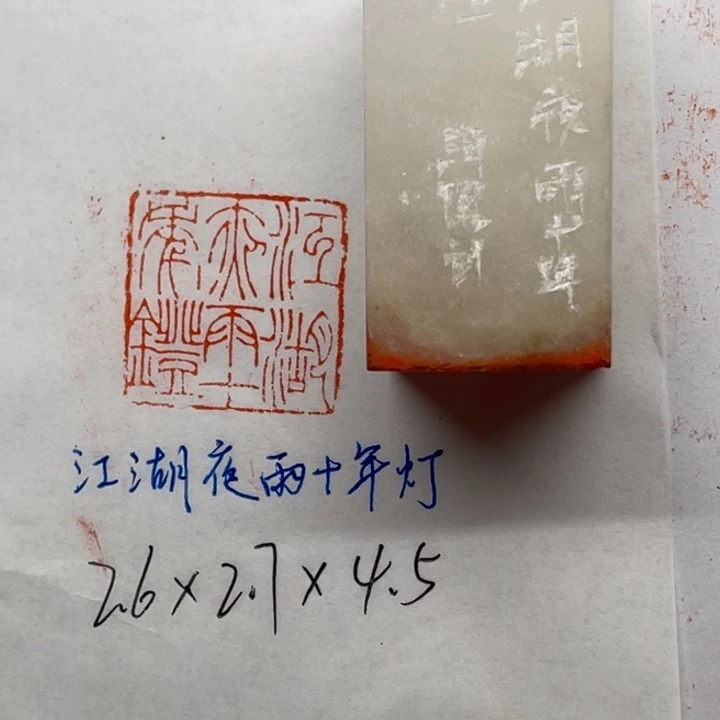 江湖
夜雨十
年鐙
湖夜雨十年
刻
江湖夜雨十年灯
2.6×2.7×4.5